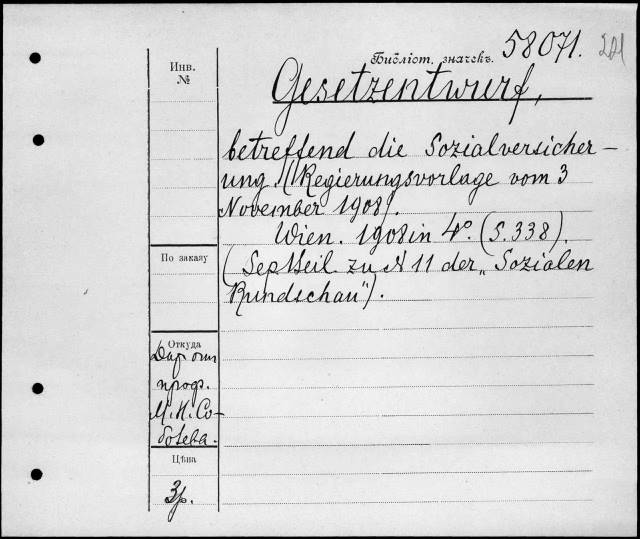 Библіот. значекъ. 58071. 221
Инв.
№
Gesetzentwurf,
betreffend die Sozialversicher-
ung (Regierungsvorlage vom 3
November 1908).
Wien. 1908 in 4°. (S. 338).
По заказу
(Sep Theil zu N 11 der „Sozialen
Rundschau").
Откуда
Дар отъ
проф.
М. Н. Со-
болева.
Цѣна
3р.